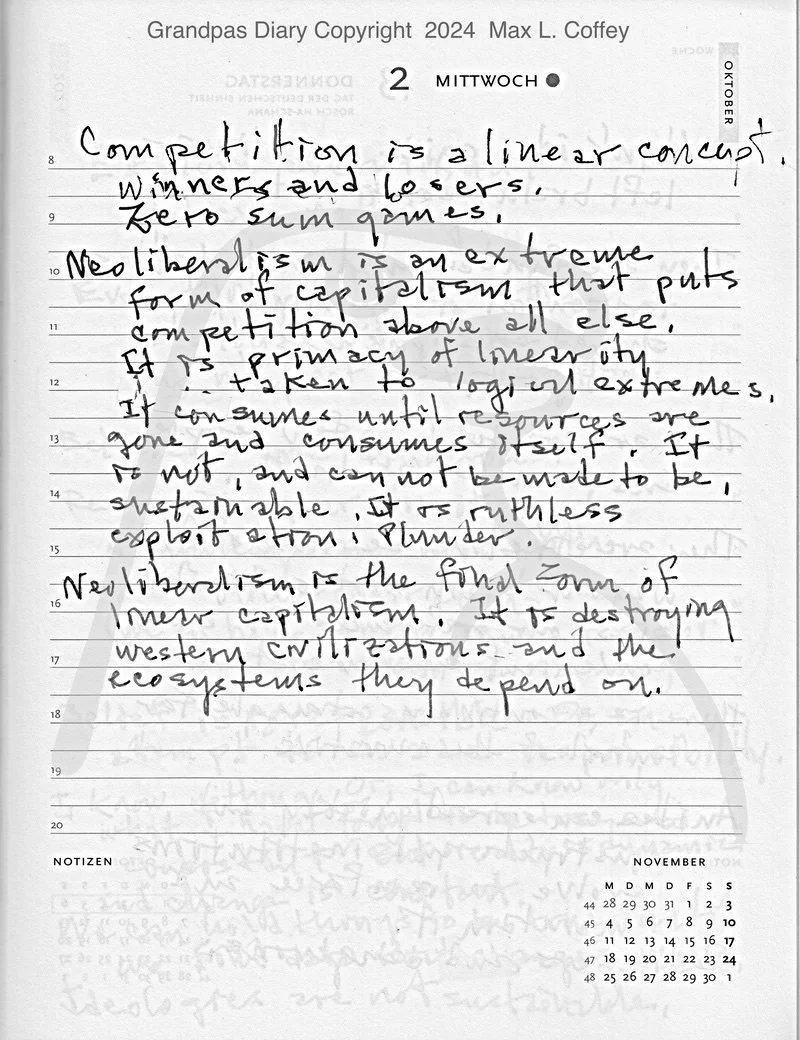 Grandpas Diary Copyright 2024 Max L. Coffey
2 MITTWOCH
OKTOBER
8 Competition is a linear concept.
winners and losers.
9 Zero sum games.
10 Neoliberalism is an extreme
form of capitalism that puts
11 competition above all else.
It is primacy of linearity
12 taken to logical extremes.
It consumes until resources are
13 gone and consumes itself. It
is not, and can not be made to be,
14 sustainable. It is ruthless
exploitation. Plunder.
15
Neoliberalism is the final form of
16 linear capitalism. It is destroying
western civilizations and the
17 ecosystems they depend on.
18
19
20
NOTIZEN
NOVEMBER
M D M D F S S
44 28 29 30 31 1 2 3
45 4 5 6 7 8 9 10
46 11 12 13 14 15 16 17
47 18 19 20 21 22 23 24
48 25 26 27 28 29 30 1